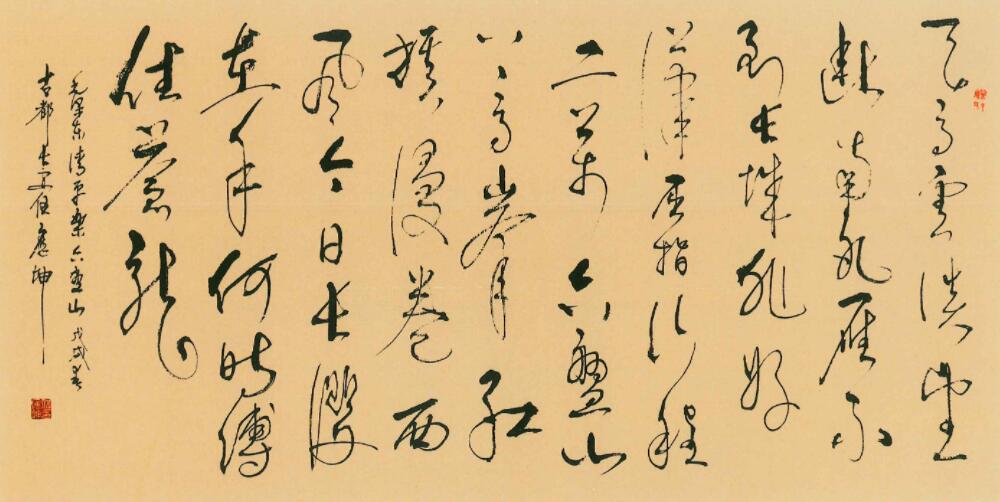 天高雲淡望
斷南飛雁不
到長城非好
漢屈指行程
二萬六盤山
上高峰紅
旗漫卷西
風今日長纓
在手何時縛
住蒼龍
毛澤東清平樂六盤山戊戌春
古都長安應坤